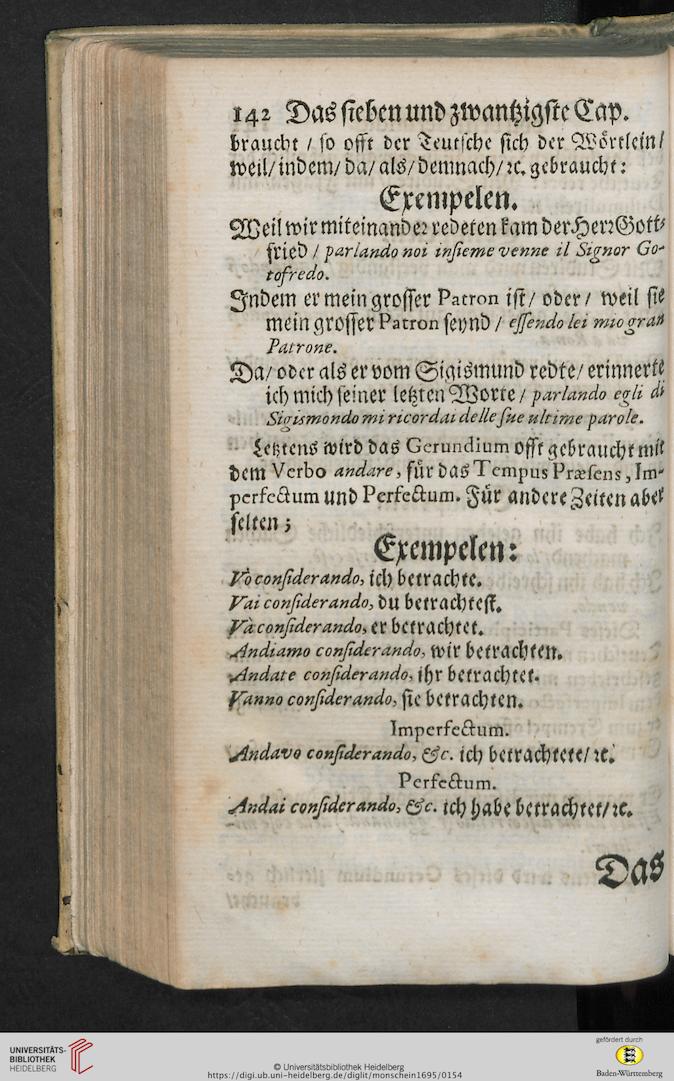 142 Das sieben und zwantzigste Cap.
braucht / so offt der Teutsche sich der Wörtlein /
weil/ indem/ da/ als/ demnach/ ꝛc. gebraucht:
Exempelen.
Weil wir miteinander redeten kam der Herr Gott-
fried / parlando noi insieme venne il Signor Go-
tofredo.
Indem er mein grosser Patron ist / oder / weil sie
mein grosser Patron seynd / essendo lei mio gran
Patrone.
Da/ oder als er vom Sigismund redte/ erinnerte
ich mich seiner letzten Worte / parlando egli di
Sigismondo mi ricordai delle sue ultime parole.
Letztens wird das Gerundium offt gebraucht mit
dem Verbo andare, für das Tempus Præsens, Im-
perfectum und Perfectum. Für andere Zeiten aber
selten;
Exempelen:
Vò considerando, ich betrachte.
Vai considerando, du betrachtest.
Và considerando, er betrachtet.
Andiamo considerando, wir betrachten.
Andate considerando, ihr betrachtet.
Vanno considerando, sie betrachten.
Imperfectum.
Andavo considerando, &c. ich betrachtete/ ꝛc.
Perfectum.
Andai considerando, &c. ich habe betrachtet/ ꝛc.
Das
UNIVERSITÄTS-
BIBLIOTHEK
HEIDELBERG
© Universitätsbibliothek Heidelberg
https://digi.ub.uni-heidelberg.de/diglit/monschein1695/0154
gefördert durch
Baden-Württemberg